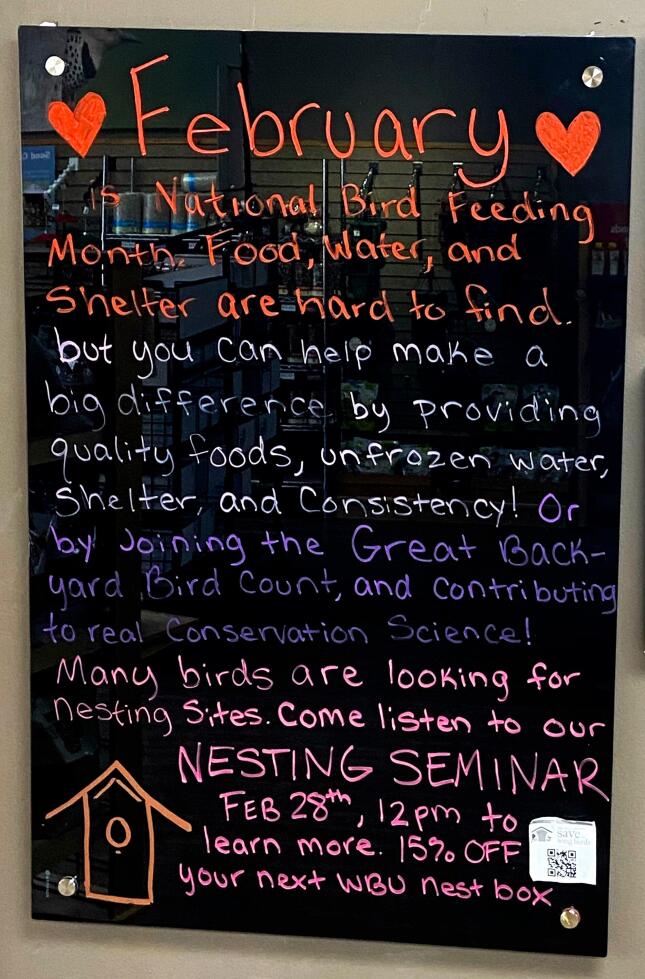 February
is National Bird Feeding
Month. Food, Water, and
Shelter are hard to find.
but you can help make a
big difference by providing
quality foods, unfrozen water,
Shelter, and Consistency! Or
by Joining the Great Back-
yard Bird Count, and contributing
to real Conservation Science!
Many birds are looking for
nesting Sites. Come listen to our
NESTING SEMINAR
FEB 28th, 12pm to
learn more. 15% OFF
your next WBU nest box
save
song birds